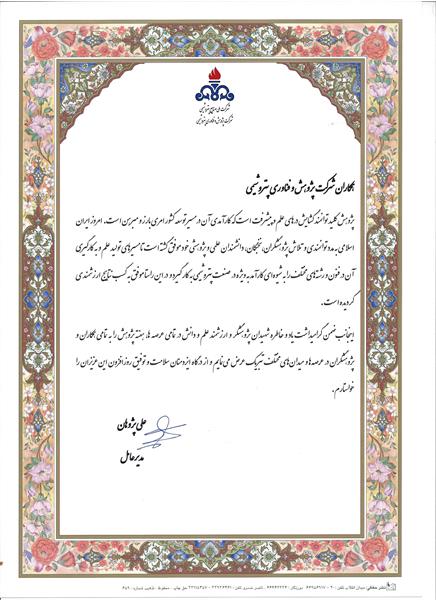 شرکت ملی صنایع پتروشیمی
شرکت پژوهش و فناوری پتروشیمی
همکاران شرکت پژوهش و فناوری پتروشیمی
پژوهش کلید توانمند گشایش درهای علم و پیشرفت است که کارآمدی آن در مسیر توسعه کشور امری بارز و مبرهن است. امروز ایران
اسلامی به مدد توانمندی و تلاش پژوهشگران، نخبگان، دانشمندان علمی و پژوهشی خود موفق گشته است تا مسیرهای تولید علم و به کارگیری
آن در فنون و رشته های مختلف را به شیوه ای کارآمد به ویژه در صنعت پتروشیمی به کار گیرد و در این راستا موفق به کسب نتایج ارزشمندی
گردیده است.
اینجانب ضمن گرامیداشت یاد و خاطره شهیدان پژوهشگر و ارزشمند علم و دانش در تمامی عرصه ها، هفته پژوهش را به تمامی همکاران و
پژوهشگران در عرصه ها و میدان های مختلف تبریک عرض می نمایم و از درگاه ایزد منان سلامت و توفیق روزافزون این عزیزان را
خواستارم.
علی پژوهان
مدیرعامل